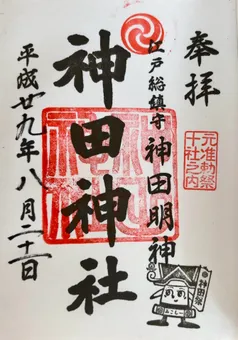 奉拝
元准勅祭
十社之内
江戸総鎮守
神田明神
神田神社
平成廿九年八月二十一日
神田祭
みこしー